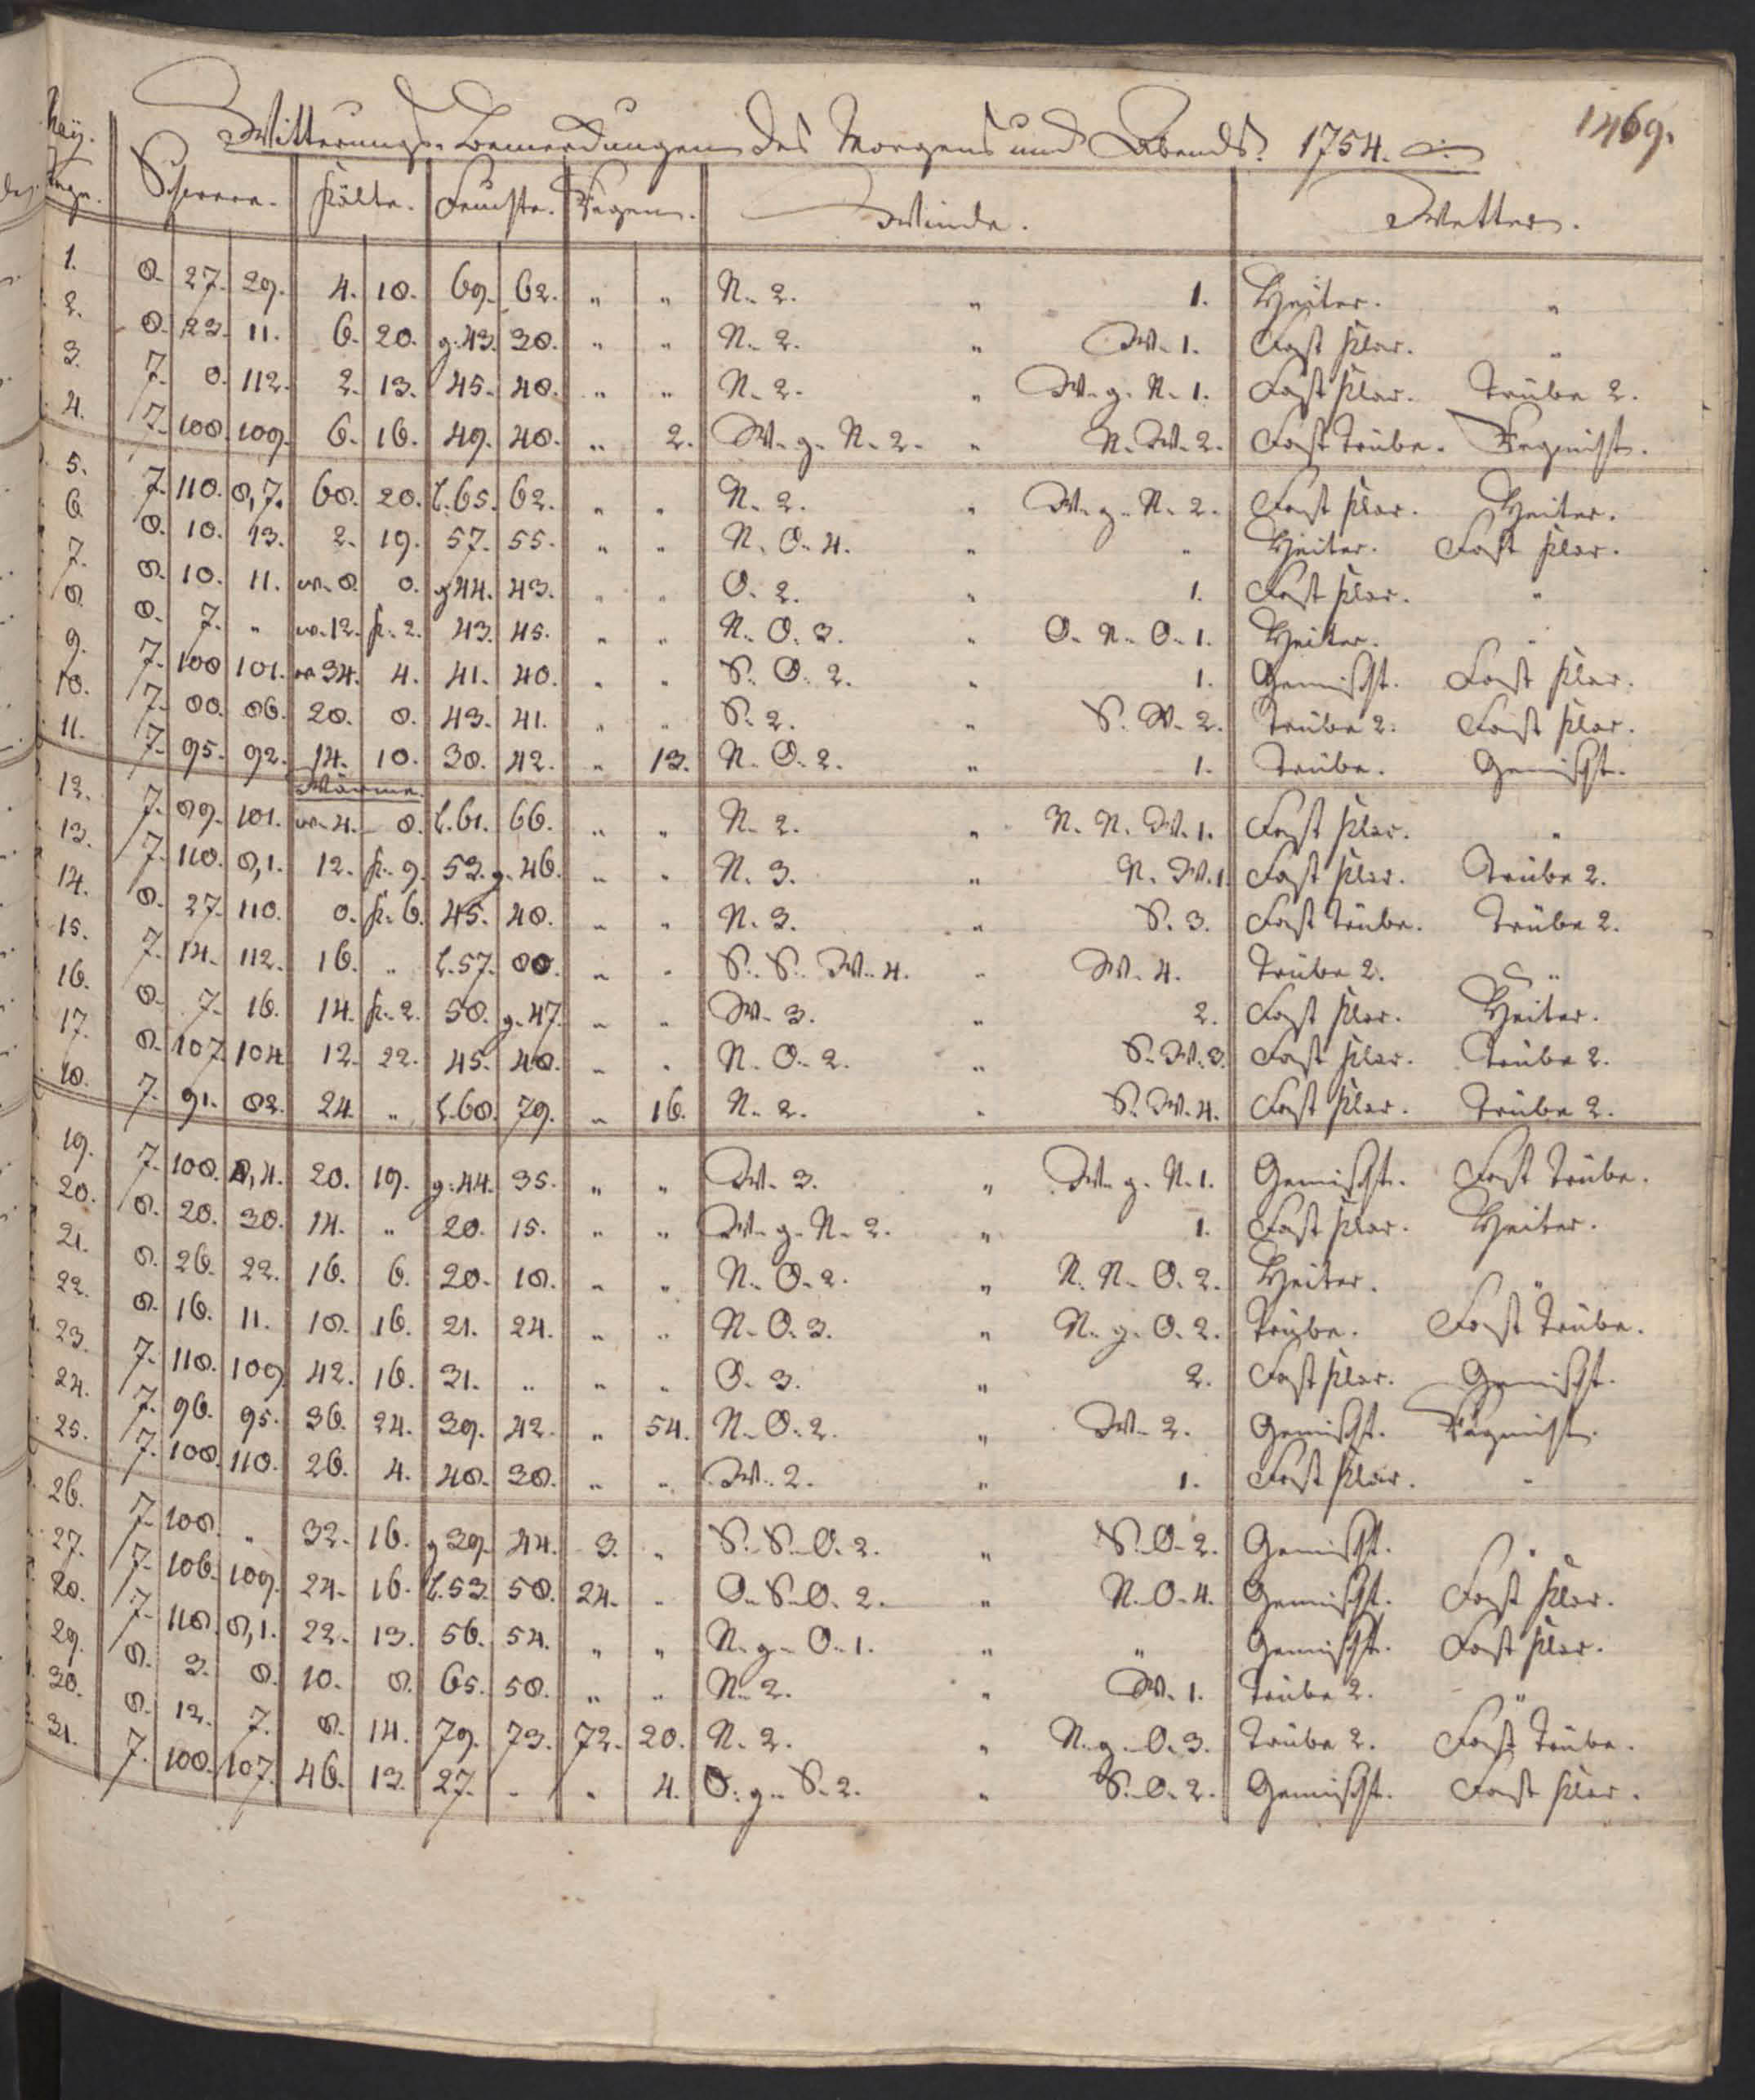 1469.
Witterungs-Bemerckungen des Morgens und Abends. 1754.
May. Tage. Schwere. Kälte. Feuchte. Regen. Winde. Wetter.
1. 8. 27. 29. 4. 18. 69. 62. " " N. 2. " 1. Heiter. "
2. 8. 23. 11. 6. 20. g. 43. 38. " " N. 2. " W. 1. Fast klar. "
3. 7. 8. 112. 2. 13. 45. 48. " " N. 2. " W. g. N. 1. Fast klar. Trübe 2.
4. 7. 108. 109. 6. 16. 49. 48. " 2. W. g. N. 2. " N. W. 2. Fast trübe. Regnicht.
5. 7. 110. 8,7. 68. 20. l. 65. 62. " " N. 2. " W. g. N. 2. Fast klar. Heiter.
6. 8. 10. 13. 2. 19. 57. 55. " " N. O. 4. " " Heiter. Fast klar.
7. 8. 10. 11. w. 8. 0. g 44. 43. " " O. 2. " 1. Fast klar. "
8. 8. 7. " w. 12. k. 2. 43. 45. " " N. O. 3. " O. N. O. 1. Heiter. "
9. 7. 108 101. w 34. 4. 41. 40. " " S. O. 2. " 1. Gemischt. Fast klar.
10. 7. 88. 86. 28. 8. 43. 41. " " S. 2. " S. W. 2. Trübe 2. Fast klar.
11. 7. 95. 92. 14. 10. 38. 42. " 13. N. O. 2. " 1. Trübe. Gemischt.
Wärme.
12. 7. 89. 101. w. 4. 8. l. 61. 66. " " N. 2. " N. N. W. 1. Fast klar. "
13. 7. 110. 8,1. 12. k. 9. 53. g. 46. " " N. 3. " N. W. 1 Fast klar. Trübe 2.
14. 8. 27. 110. 0. k. 6. 45. 48. " " N. 3. " S. 3. Fast trübe. Trübe 2.
15. 7. 14. 112. 16. " l. 57. 80. " " S. S. W. 4. " W. 4. Trübe 2. "
16. 8. 7. 16. 14. k. 2. 58. g. 47. " " W. 3. " 2. Fast klar. Heiter.
17. 8. 107 104 12. 22. 45. 48. " " N. O. 2. " S. W. 3. Fast klar. Trübe 2.
18. 7. 91. 82. 24. " l. 68. 79. " 16. N. 2. " S. W. 4. Fast klar. Trübe 2.
19. 7. 108. 8,4. 20. 19. g. 44. 35. " " W. 3. " W. g. N. 1. Gemischt. Fast trübe.
20. 8. 20. 30. 14. " 20. 15. " " W. g. N. 2. " 1. Fast klar. Heiter.
21. 8. 26. 22. 16. 6. 20. 18. " " N. O. 2. " N. N. O. 2. Heiter. "
22. 8. 16. 11. 18. 16. 21. 24. " " N. O. 3. " N. g. O. 2. Trübe. Fast trübe.
23. 7. 118. 109. 42. 16. 31. " " " O. 3. " 2. Fast klar. Gemischt.
24. 7. 96. 95. 36. 24. 39. 42. " 54. N. O. 2. " W. 2. Gemischt. Regnicht.
25. 7. 108. 110. 26. 4. 48. 38. " " W. 2. " 1. Fast klar. "
26. 7. 108. " 32. 16. g 39. 44. 3. " S. S. O. 2. " S. O. 2. Gemischt. "
27. 7. 106. 109. 24. 16. l. 53. 58. 24. " O. S. O. 2. " N. O. 4. Gemischt. Fast klar.
28. 7. 118. 8,1. 22. 13. 56. 54. " " N. g. O. 1. " " Gemischt. Fast klar.
29. 8. 3. 8. 10. 8. 65. 58. " " N. 2. " W. 1. Trübe 2. "
30. 8. 12. 7. 8. 14. 79. 73. 72. 20. N. 2. " N. g. O. 3. Trübe 2. Fast trübe.
31. 7. 108. 107. 46. 13. 27. " " 4. O. g. S. 2. " S. O. 2. Gemischt. Fast klar.